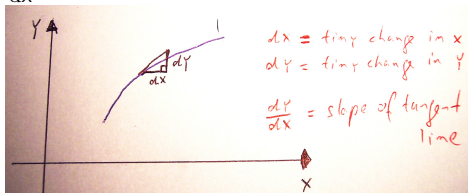 dx
Y
dY
dx
X
dx = tiny change in x
dY = tiny change in Y
dY/dX = slope of tangent
line